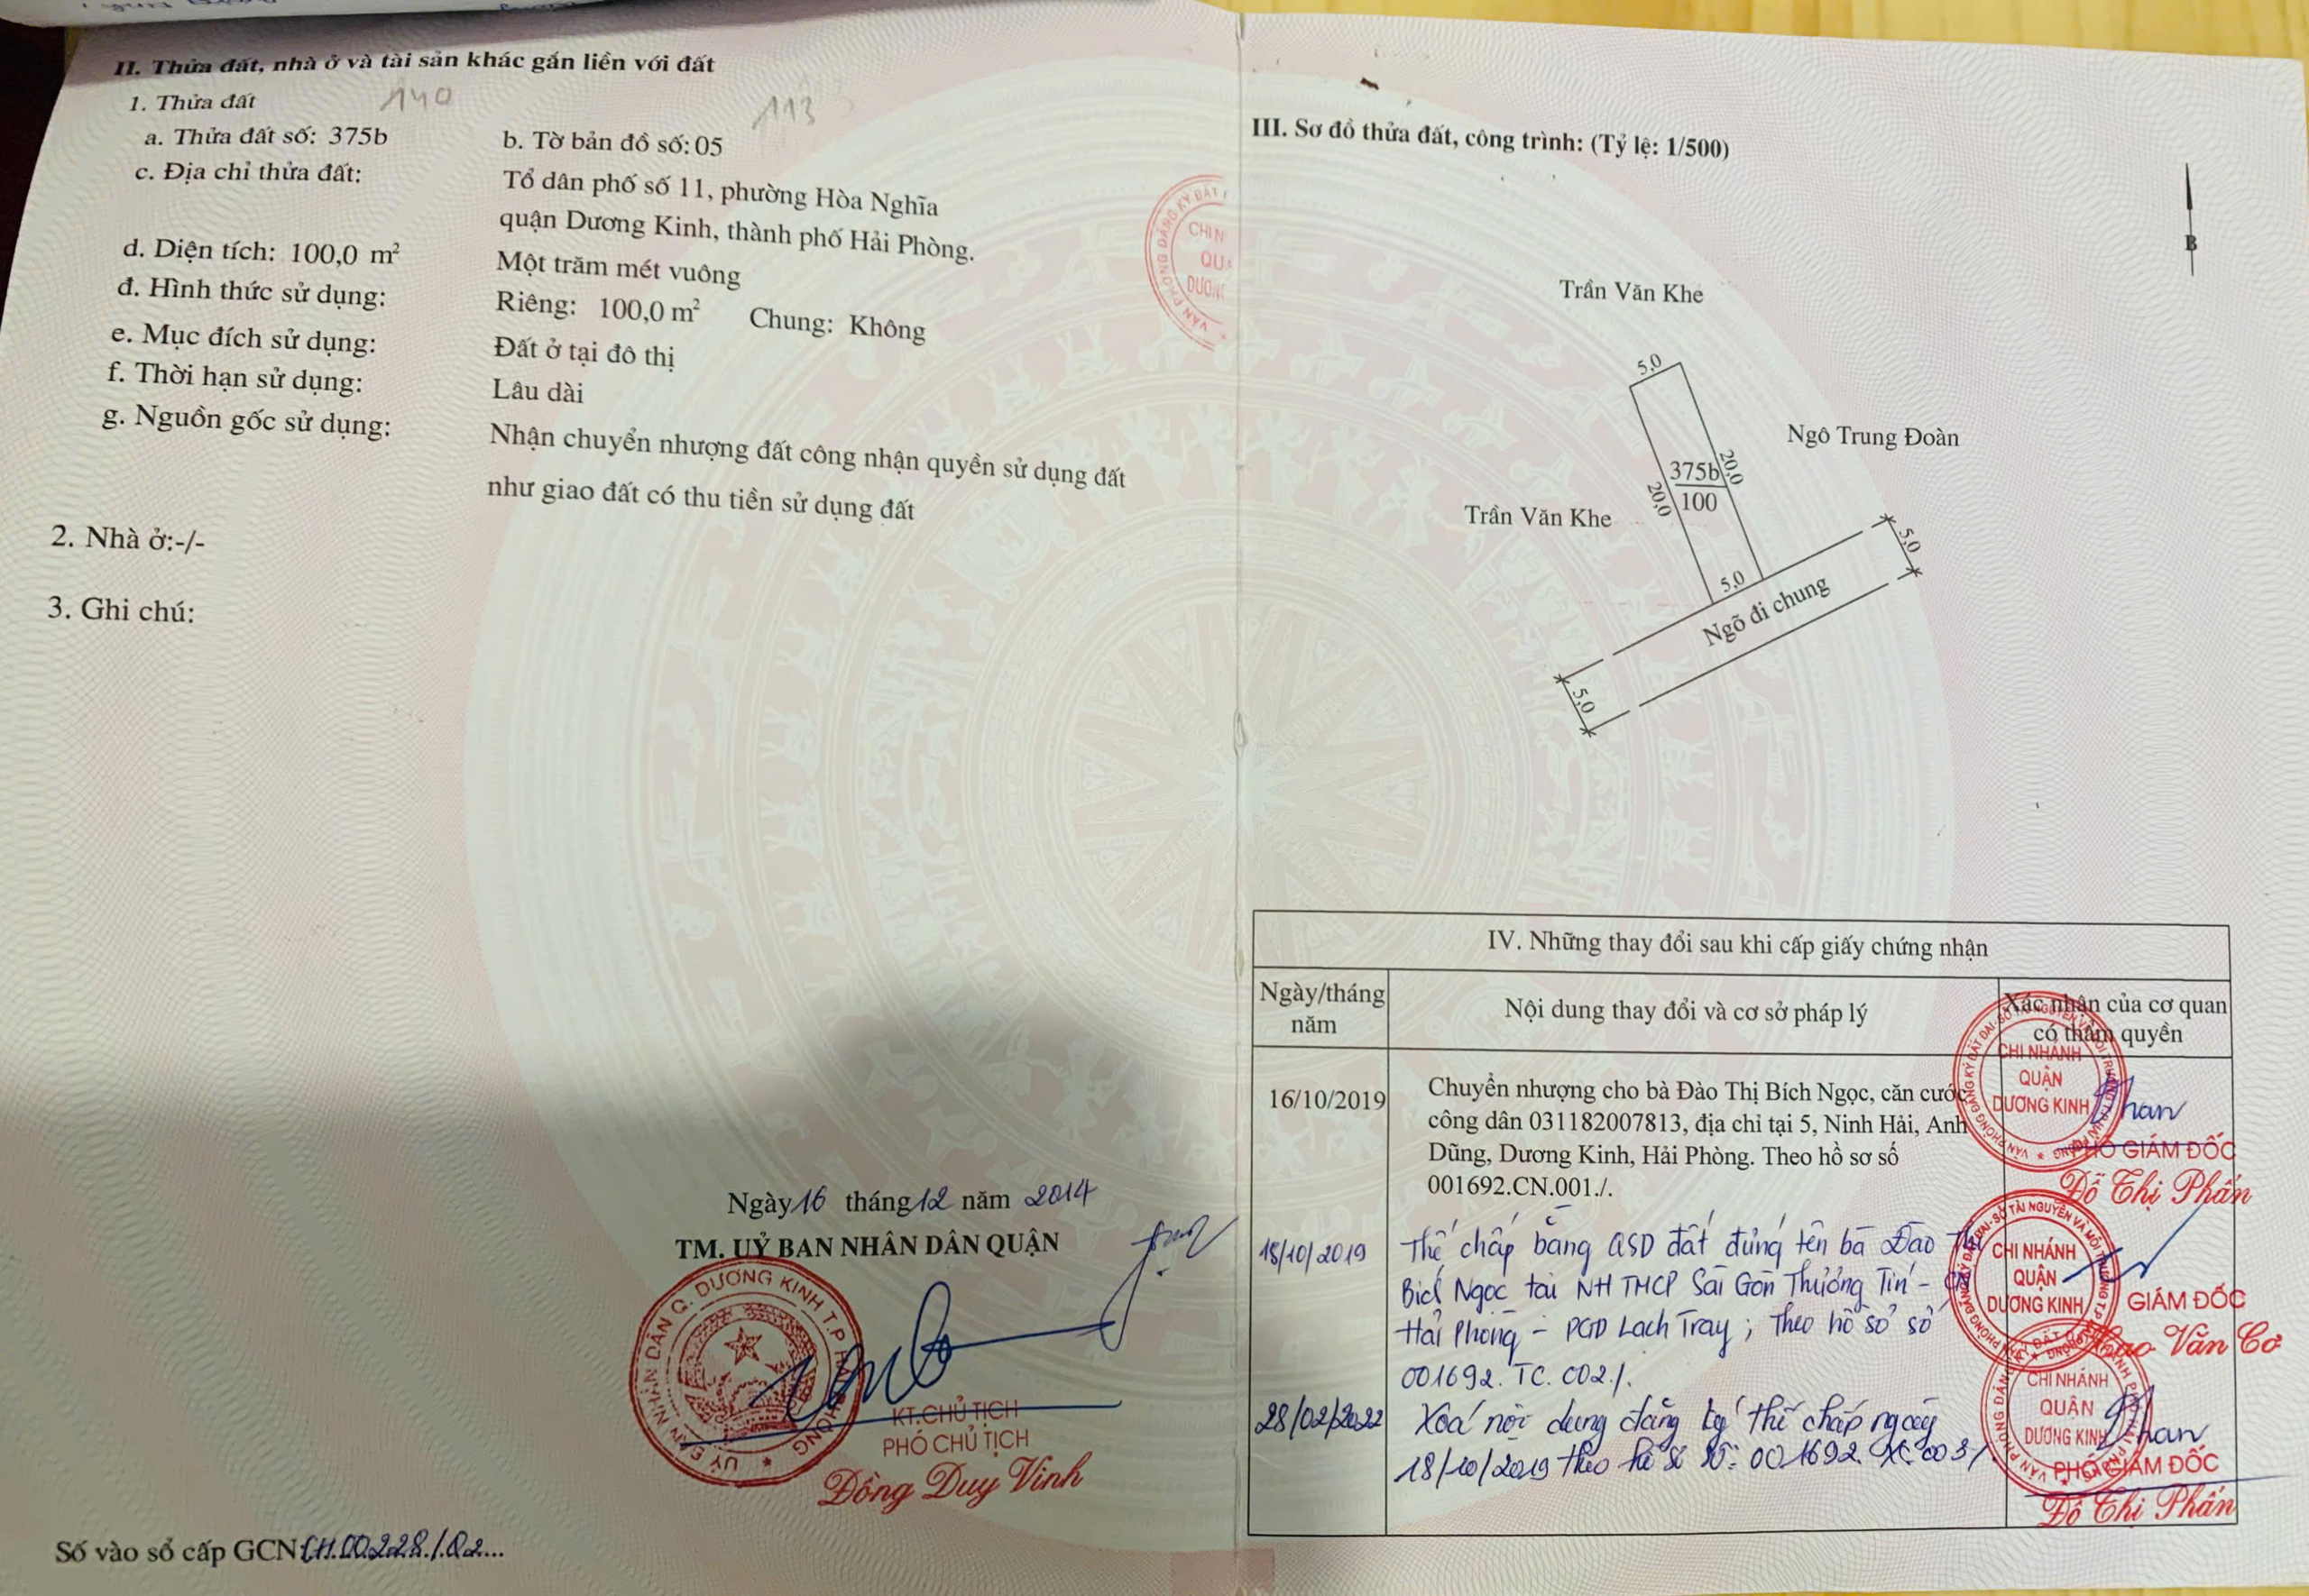 II. Thửa đất, nhà ở và tài sản khác gắn liền với đất
1. Thửa đất
140
113
a. Thửa đất số: 375b
b. Tờ bản đồ số: 05
c. Địa chỉ thửa đất:
Tổ dân phố số 11, phường Hòa Nghĩa
quận Dương Kinh, thành phố Hải Phòng.
d. Diện tích: 100,0 m²
Một trăm mét vuông
đ. Hình thức sử dụng:
Riêng: 100,0 m² Chung: Không
e. Mục đích sử dụng:
Đất ở tại đô thị
f. Thời hạn sử dụng:
Lâu dài
g. Nguồn gốc sử dụng:
Nhận chuyển nhượng đất công nhận quyền sử dụng đất
như giao đất có thu tiền sử dụng đất
2. Nhà ở:-/-
3. Ghi chú:
Ngày 16 tháng 12 năm 2014
TM. UỶ BAN NHÂN DÂN QUẬN
UỶ BAN NHÂN DÂN Q. DƯƠNG KINH T.P HẢI PHÒNG
KT.CHỦ TỊCH
PHÓ CHỦ TỊCH
Đồng Duy Vinh
Số vào sổ cấp GCN: CH.00228/02...
III. Sơ đồ thửa đất, công trình: (Tỷ lệ: 1/500)
VĂN PHÒNG ĐĂNG KÝ ĐẤT
B
Trần Văn Khe
5,0
Ngô Trung Đoàn
375b
100
20,0
20,0
Trần Văn Khe
5,0
5,0
Ngõ đi chung
5,0
IV. Những thay đổi sau khi cấp giấy chứng nhận
Ngày/tháng
năm
Nội dung thay đổi và cơ sở pháp lý
Xác nhận của cơ quan
có thẩm quyền
16/10/2019
Chuyển nhượng cho bà Đào Thị Bích Ngọc, căn cước
công dân 031182007813, địa chỉ tại 5, Ninh Hải, Anh
Dũng, Dương Kinh, Hải Phòng. Theo hồ sơ số
001692.CN.001./.
CHI NHÁNH
QUẬN
DƯƠNG KINH
PHÓ GIÁM ĐỐC
Đỗ Thị Phấn
18/10/2019
Thế chấp bằng QSD đất đứng tên bà Đào Thị
Bích Ngọc tại NH TMCP Sài Gòn Thương Tín - CN
Hải Phòng - PGD Lạch Tray; Theo hồ sơ số
001692.TC.002./.
CHI NHÁNH
QUẬN
DƯƠNG KINH
GIÁM ĐỐC
Văn Cơ
28/02/2022
Xoá nội dung đăng ký thế chấp ngày
18/10/2019 theo hồ sơ số: 001692.XC.003/.
CHI NHÁNH
QUẬN
DƯƠNG KINH
PHÓ GIÁM ĐỐC
Đỗ Thị Phấn